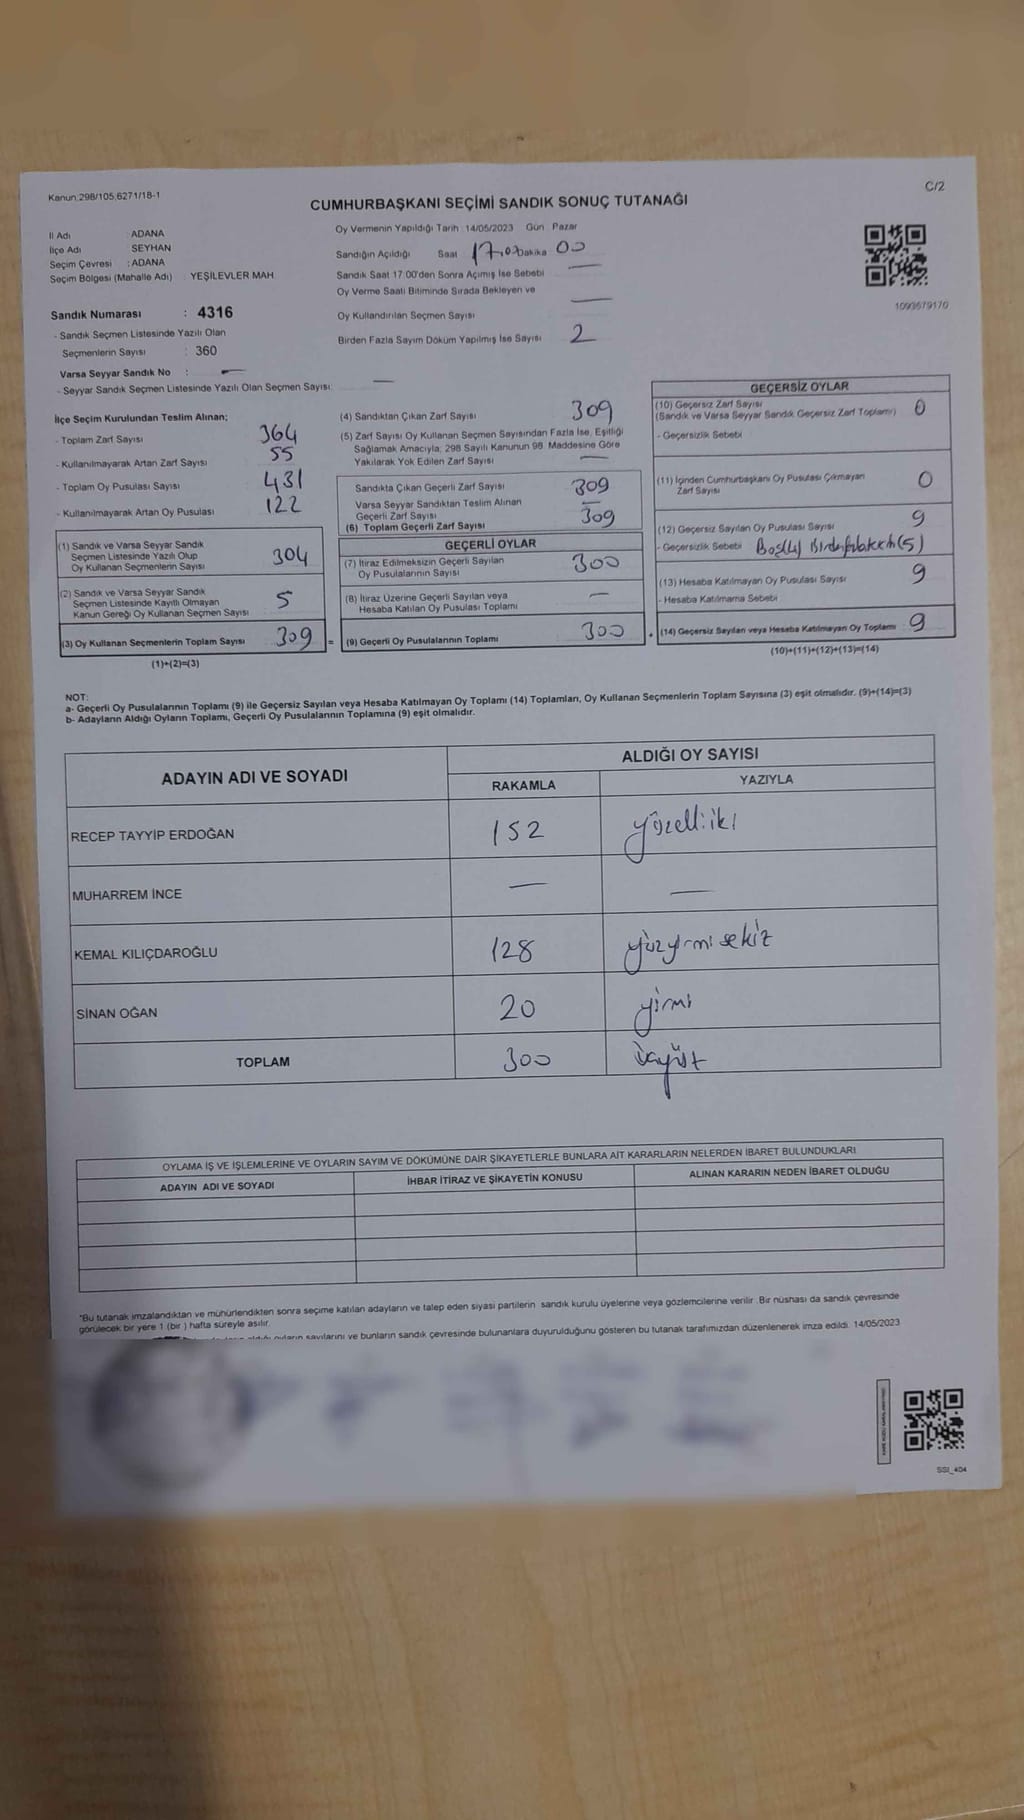 Kanun:298/105,6271/18-1
C/2
CUMHURBAŞKANI SEÇİMİ SANDIK SONUÇ TUTANAĞI
İl Adı : ADANA
İlçe Adı : SEYHAN
Seçim Çevresi : ADANA
Seçim Bölgesi (Mahalle Adı) : YEŞİLEVLER MAH.
Sandık Numarası : 4316
- Sandık Seçmen Listesinde Yazılı Olan
Seçmenlerin Sayısı : 360
Varsa Seyyar Sandık No : —
- Seyyar Sandık Seçmen Listesinde Yazılı Olan Seçmen Sayısı: —
Oy Vermenin Yapıldığı Tarih : 14/05/2023 Gün : Pazar
Sandığın Açıldığı Saat 17.00 Dakika 00
Sandık Saat 17:00'den Sonra Açılmış İse Sebebi —
Oy Verme Saati Bitiminde Sırada Bekleyen ve
Oy Kullandırılan Seçmen Sayısı —
Birden Fazla Sayım Döküm Yapılmış İse Sayısı 2
1093679170
İlçe Seçim Kurulundan Teslim Alınan;
- Toplam Zarf Sayısı 364
- Kullanılmayarak Artan Zarf Sayısı 55
- Toplam Oy Pusulası Sayısı 431
- Kullanılmayarak Artan Oy Pusulası 122
(1) Sandık ve Varsa Seyyar Sandık
Seçmen Listesinde Yazılı Olup
Oy Kullanan Seçmenlerin Sayısı 304
(2) Sandık ve Varsa Seyyar Sandık
Seçmen Listesinde Kayıtlı Olmayan
Kanun Gereği Oy Kullanan Seçmen Sayısı 5
(3) Oy Kullanan Seçmenlerin Toplam Sayısı 309 =
(1)+(2)=(3)
(4) Sandıktan Çıkan Zarf Sayısı 309
(5) Zarf Sayısı Oy Kullanan Seçmen Sayısından Fazla İse, Eşitliği
Sağlamak Amacıyla, 298 Sayılı Kanunun 98. Maddesine Göre
Yakılarak Yok Edilen Zarf Sayısı —
Sandıkta Çıkan Geçerli Zarf Sayısı 309
Varsa Seyyar Sandıktan Teslim Alınan
Geçerli Zarf Sayısı —
(6) Toplam Geçerli Zarf Sayısı 309
GEÇERLİ OYLAR
(7) İtiraz Edilmeksizin Geçerli Sayılan
Oy Pusulalarının Sayısı 300
(8) İtiraz Üzerine Geçerli Sayılan veya
Hesaba Katılan Oy Pusulası Toplamı —
(9) Geçerli Oy Pusulalarının Toplamı 300 +
GEÇERSİZ OYLAR
(10) Geçersiz Zarf Sayısı
(Sandık ve Varsa Seyyar Sandık Geçersiz Zarf Toplamı) 0
- Geçersizlik Sebebi
(11) İçinden Cumhurbaşkanı Oy Pusulası Çıkmayan
Zarf Sayısı 0
(12) Geçersiz Sayılan Oy Pusulası Sayısı 9
- Geçersizlik Sebebi (5)
(13) Hesaba Katılmayan Oy Pusulası Sayısı 9
- Hesaba Katılmama Sebebi
(14) Geçersiz Sayılan veya Hesaba Katılmayan Oy Toplamı 9
(10)+(11)+(12)+(13)=(14)
NOT:
a- Geçerli Oy Pusulalarının Toplamı (9) ile Geçersiz Sayılan veya Hesaba Katılmayan Oy Toplamı (14) Toplamları, Oy Kullanan Seçmenlerin Toplam Sayısına (3) eşit olmalıdır. (9)+(14)=(3)
b- Adayların Aldığı Oyların Toplamı, Geçerli Oy Pusulalarının Toplamına (9) eşit olmalıdır.
ADAYIN ADI VE SOYADI
ALDIĞI OY SAYISI
RAKAMLA YAZIYLA
RECEP TAYYİP ERDOĞAN 152 yüzelliiki
MUHARREM İNCE — —
KEMAL KILIÇDAROĞLU 128 yüzyirmisekiz
SİNAN OĞAN 20 yirmi
TOPLAM 300
OYLAMA İŞ VE İŞLEMLERİNE VE OYLARIN SAYIM VE DÖKÜMÜNE DAİR ŞİKAYETLERLE BUNLARA AİT KARARLARIN NELERDEN İBARET BULUNDUKLARI
ADAYIN ADI VE SOYADI İHBAR İTİRAZ VE ŞİKAYETİN KONUSU ALINAN KARARIN NEDEN İBARET OLDUĞU
*Bu tutanak imzalandıktan ve mühürlendikten sonra seçime katılan adayların ve talep eden siyasi partilerin sandık kurulu üyelerine veya gözlemcilerine verilir. Bir nüshası da sandık çevresinde
görülecek bir yere 1 (bir ) hafta süreyle asılır.
aldığı oyların sayılarını ve bunların sandık çevresinde bulunanlara duyurulduğunu gösteren bu tutanak tarafımızdan düzenlenerek imza edildi. 14/05/2023
SSI_404